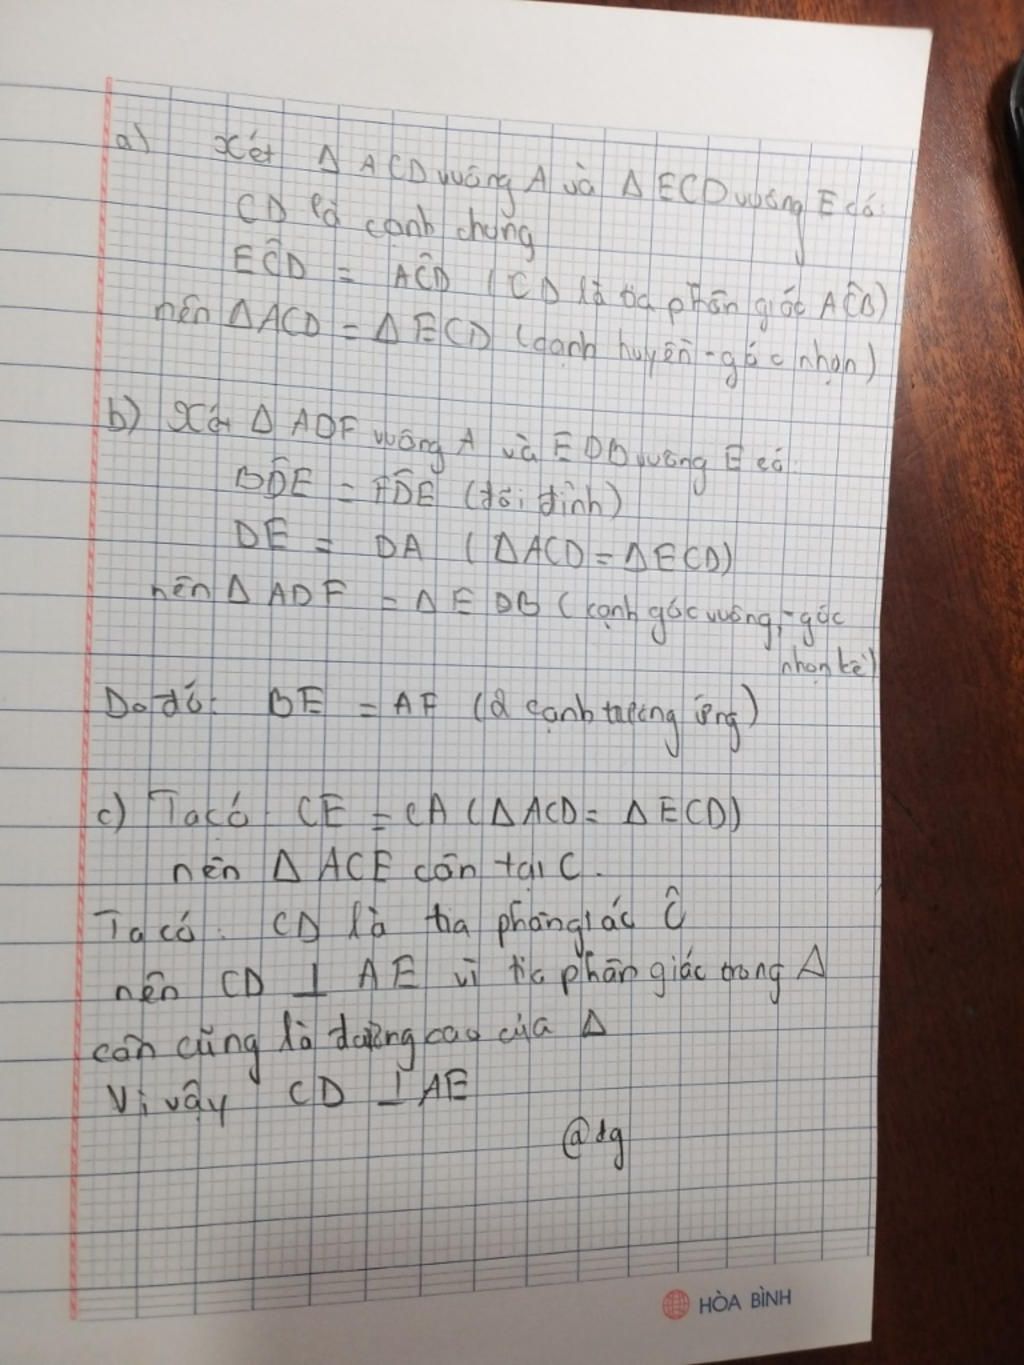 a) Xét Δ ACD vuông A và Δ ECD vuông E có:
CD là cạnh chung
EĈD = AĈD (CD là tia phân giác AĈB)
nên ΔACD = ΔECD (cạnh huyền - góc nhọn)
b) Xét Δ ADF vuông A và EDB vuông E có:
BD̂E = FD̂E (đối đỉnh)
DE = DA (ΔACD = ΔECD)
nên Δ ADF = Δ EDB (cạnh góc vuông - góc
nhọn kề)
Do đó: BE = AF (2 cạnh tương ứng)
c) Ta có: CE = CA (ΔACD = ΔECD)
nên Δ ACE cân tại C.
Ta có: CD là tia phân giác Ĉ
nên CD ⊥ AE vì tia phân giác trong Δ
cân cũng là đường cao của Δ
Vì vậy CD ⊥ AE
@dg
HÒA BÌNH